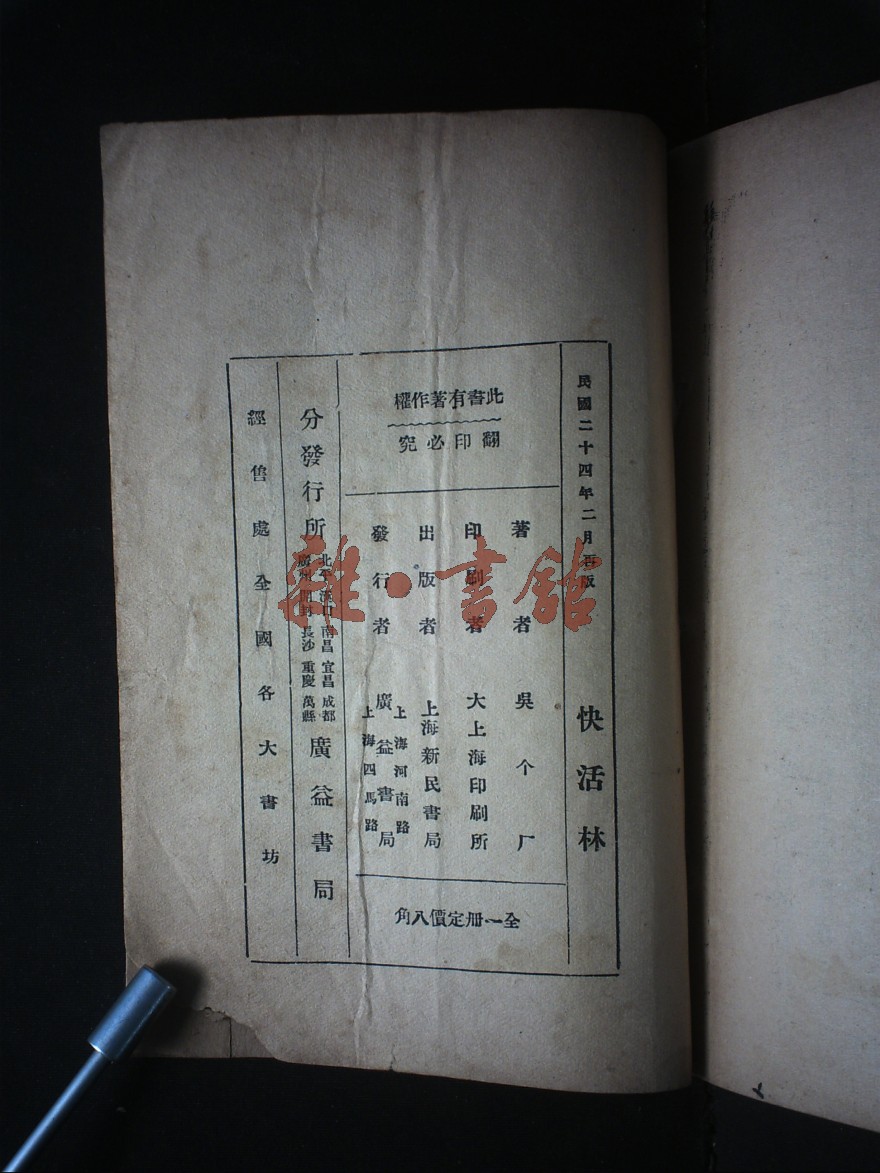 民國二十四年二月再版
快活林
此書有著作權
翻印必究
著者 吳个厂
印刷者 大上海印刷所
出版者 上海新民書局
發行者 廣益書局
上海河南路
上海四馬路
全一册定價八角
分發行所
北平 漢口 南昌 宜昌 成都
廣州 開封 長沙 重慶 萬縣
廣益書局
經售處全國各大書坊
雜·書館